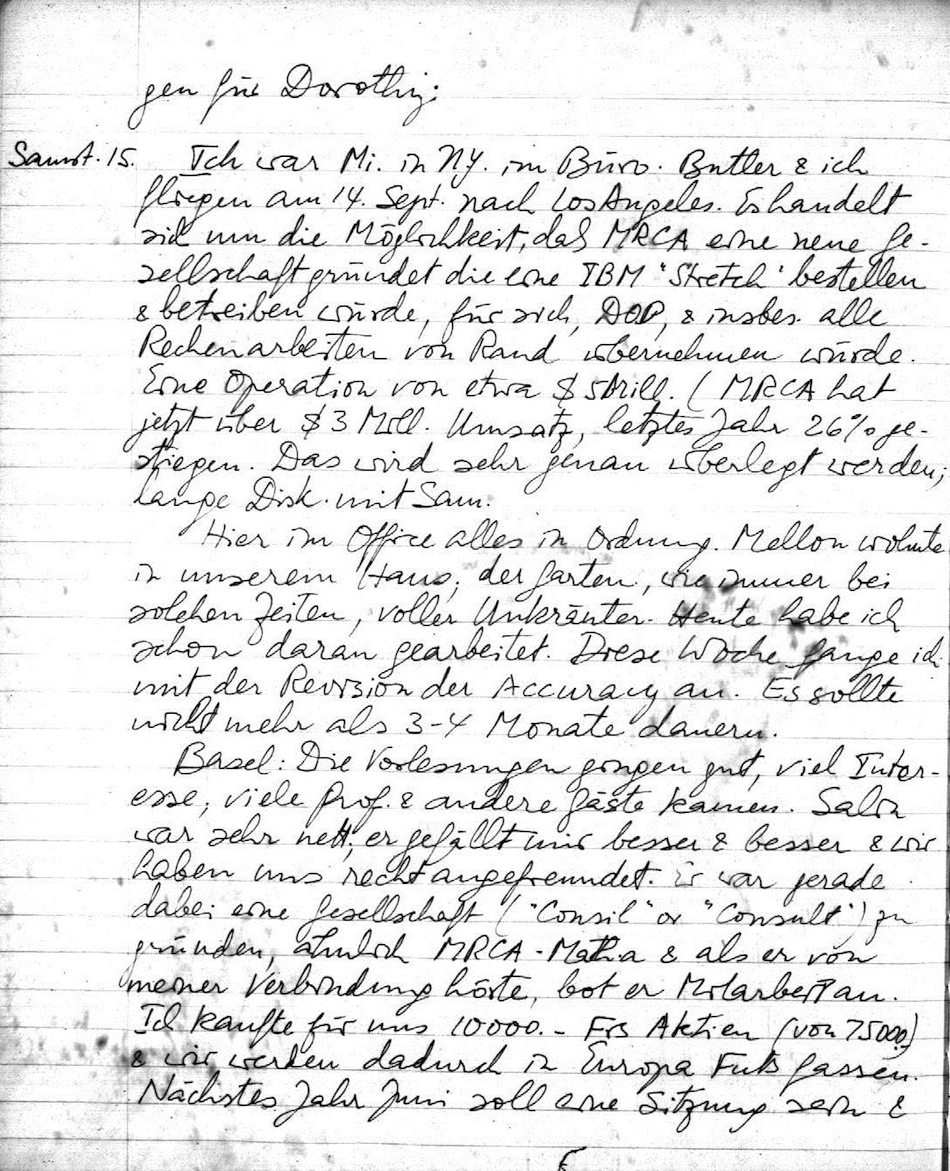 gen für Dorothy;
Samst. 15. Ich war Mi. in NY. im Büro. Butler & ich
fliegen am 14. Sept. nach Los Angeles. Es handelt
sich um die Möglichkeit, daß MRCA eine neue Ge-
sellschaft gründet die eine IBM "Stretch" bestellen
& betreiben würde, für sich, DOP, & insbes. alle
Rechenarbeiten von Rand übernehmen würde.
Eine Operation von etwa $ 5 Mill. (MRCA hat
jetzt über $ 3 Mill. Umsatz, letztes Jahr 26% ge-
stiegen. Das wird sehr genau überlegt werden;
lange Disk. mit Sam.
Hier im Office alles in Ordnung. Mellon wohnte
in unserem Haus; der Garten, wie immer bei
solchen Zeiten, voller Unkräuter. Heute habe ich
schon daran gearbeitet. Diese Woche fange ich
mit der Revision der Accuracy an. Es sollte
nicht mehr als 3-4 Monate dauern.
Basel: Die Vorlesungen gingen gut, viel Inter-
esse; viele Prof. & andere Gäste kamen. Salin
war sehr nett; er gefällt mir besser & besser & wir
haben uns recht angefreundet. Er war gerade
dabei eine Gesellschaft ("Consil" or "Consult") zu
gründen, ähnlich MRCA-Matha & als er von
meiner Verbindung hörte, bot er Mitarbeit an.
Ich kaufte für uns 10000.- Frs Aktien (von 75000.)
& wir werden dadurch in Europa Fuß fassen.
Nächstes Jahr Juni soll eine Sitzung sein &